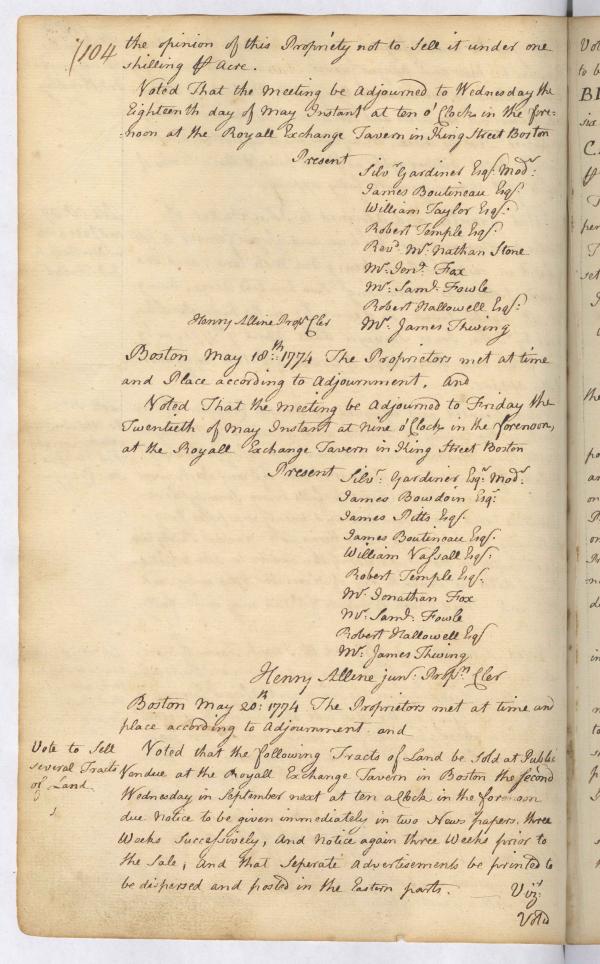 104
the opinion of this Propriety not to sell it under one
shilling ⅌ Acre.
Voted That the meeting be Adjourned to Wednesday the
Eighteenth day of May Instant at ten o'Clock in the fore=
=noon at the Royall Exchange Tavern in King Street Boston
Present
Silvr. Gardiner Esqr. Modr:
James Boutineau Esqr.
William Taylor Esqr.
Robert Temple Esqr.
Revd. Mr. Nathan Stone
Mr. Jond. Fox
Mr. Saml. Fowle
Robert Hallowell Esqr.
Henry Alline Propr. Cler
Mr. James Thwing
Boston May 18th: 1774 The Proprietors met at time
and Place according to Adjournment, and
Voted That the meeting be Adjourned to Friday the
Twentieth of May Instant at nine o'Clock in the forenoon,
at the Royall Exchange Tavern in King Street Boston
Present
Silvr. Gardiner Esqr. Modr.
James Bowdoin Esqr.
James Pitts Esqr.
James Boutineau Esqr.
William Vassall Esqr.
Robert Temple Esqr.
Mr. Jonathan Fox
Mr. Saml. Fowle
Robert Hallowell Esqr
Mr. James Thwing
Henry Alline junr. Proprs. Cler
Boston May 20th: 1774 The Proprietors met at time and
place according to Adjournment. and
Vote to Sell
several Tracts
of Land
Voted that the following Tracts of Land be sold at Public
Vendue at the Royall Exchange Tavern in Boston the second
Wednesday in September next at ten a Clock in the forenoon
due Notice to be given immediately in two News papers three
Weeks Successively, and Notice again three Weeks prior to
the Sale, and that Seperate Advertisements be printed to
be dispersed and posted in the Eastern parts.
Vizt.
Voted